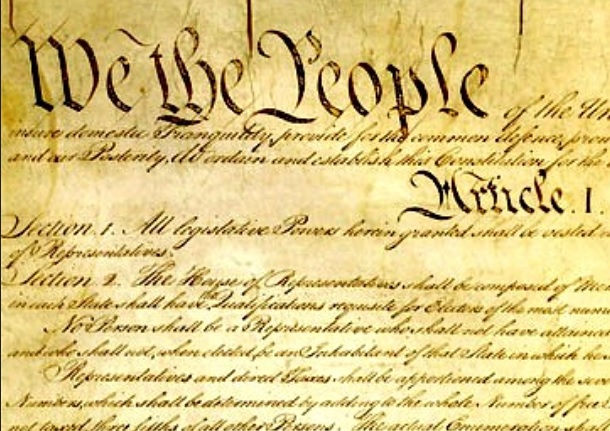 We the People of the Un
insure domestic Tranquility, provide for the common defence, prom
and our Posterity, do ordain and establish this Constitution for the
Article. I.
Section. 1. All legislative Powers herein granted shall be vested
of Representatives.
Section. 2. The House of Representatives shall be composed of Mem
in each State shall have Qualifications requisite for Electors of the most num
No Person shall be a Representative who shall not have attained
and who shall not, when elected, be an Inhabitant of that State in which he
Representatives and direct Taxes shall be apportioned among the seve
Numbers, which shall be determined by adding to the whole Number of free
not taxed, three fifths of all other Persons. The actual Enumeration shall